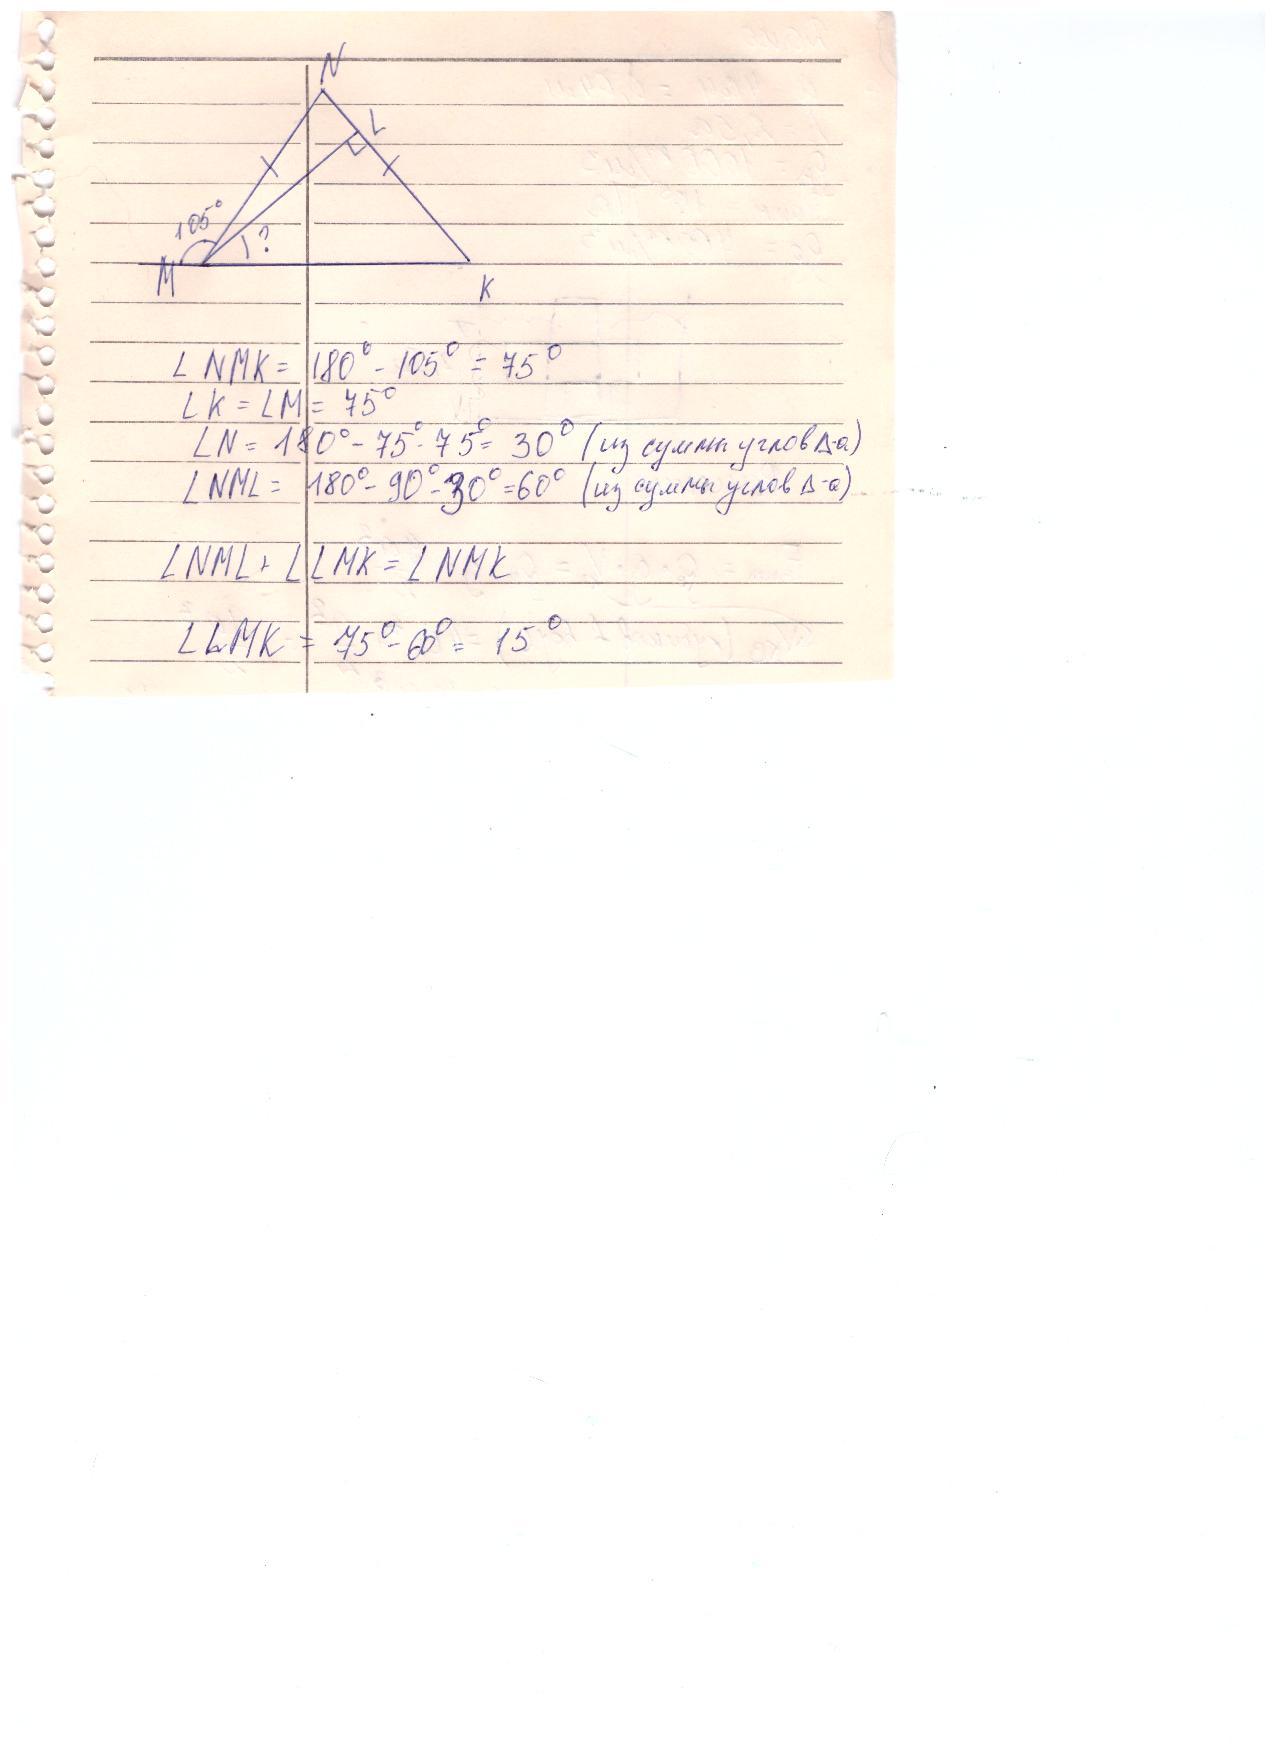 N
L
105°
?
M
K
∠NMK = 180° - 105° = 75°
∠K = ∠M = 75°
∠N = 180° - 75° - 75° = 30° (из суммы углов Δ-а)
∠NML = 180° - 90° - 30° = 60° (из суммы углов Δ-а)
∠NML + ∠LMK = ∠NMK
∠LMK = 75° - 60° = 15°